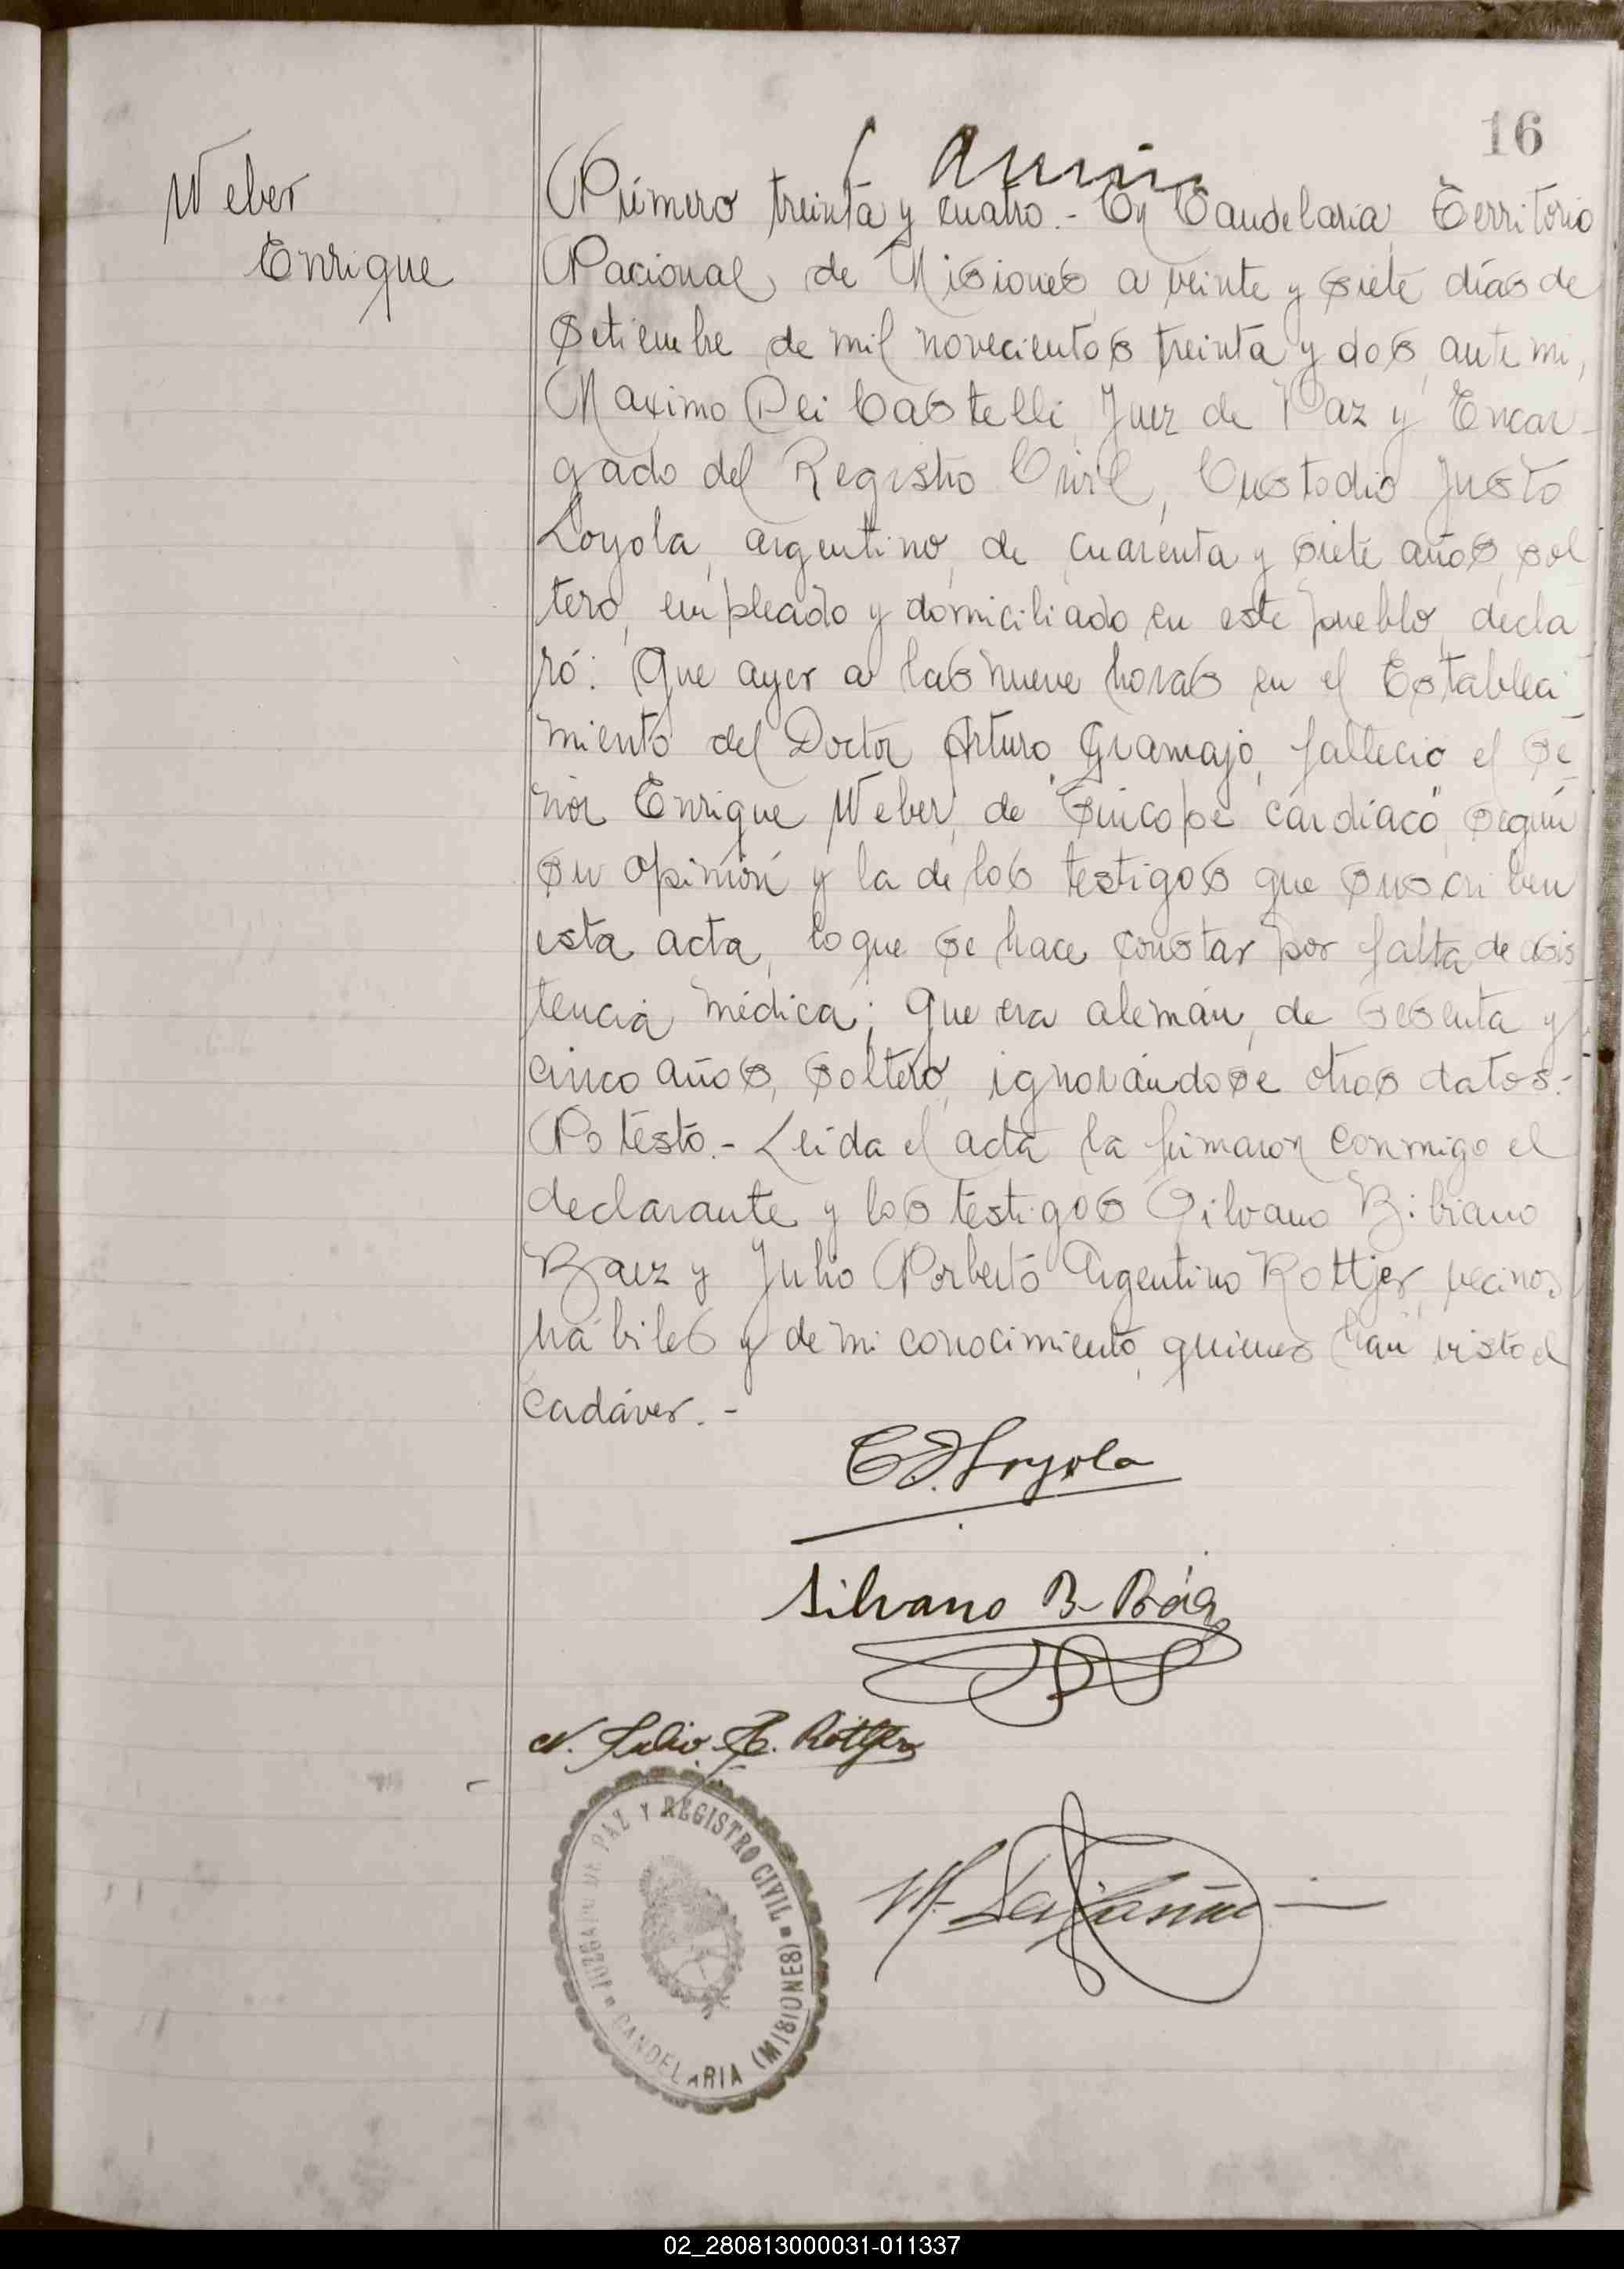 16
Weber
Enrique
Número treinta y cuatro.- En Candelaria, Territorio
Nacional de Misiones, a veinte y siete días de
Setiembre de mil novecientos treinta y dos, ante mi,
Maximo Dei Castelli, Juez de Paz y Encar-
gado del Registro Civil, Custodio Justo
Loyola, argentino, de cuarenta y siete años, sol
tero, empleado y domiciliado en este pueblo, decla
ró: Que ayer a las nueve horas en el Estableci-
miento del Doctor Arturo Gramajo, falleció el Se-
ñor Enrique Weber, de "Síncope cardíaco", según
su opinión y la de los testigos que suscriben
esta acta, lo que se hace constar por falta de asis-
tencia médica; Que era alemán, de sesenta y
cinco años, soltero, ignorándose otros datos.-
No testó.- Leída el acta la firmaron conmigo el
declarante y los testigos Silvano Bibiano
Baez y Julio Norberto Argentino Rottjer, vecinos
hábiles y de mi conocimiento, quienes han visto el
cadáver.-
C. J. Loyola
Silvano B. Báez
N. Julio A. Röttjer
JUZGADO DE PAZ Y REGISTRO CIVIL
CANDELARIA (MISIONES)
02_280813000031-011337